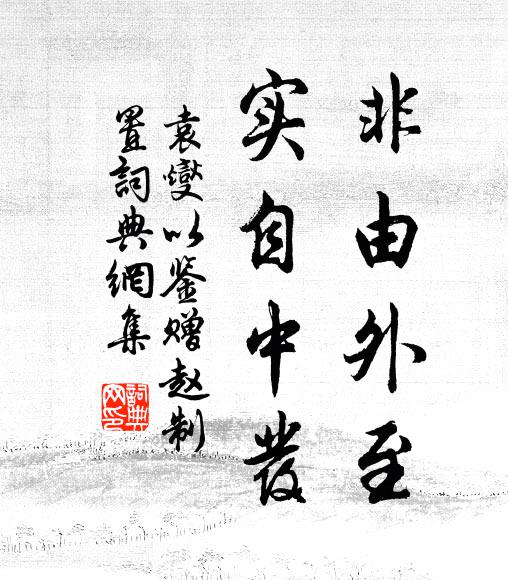 非由外至
实自中发
袁燮以鉴赠赵制
置詞典網集
詞典
网印